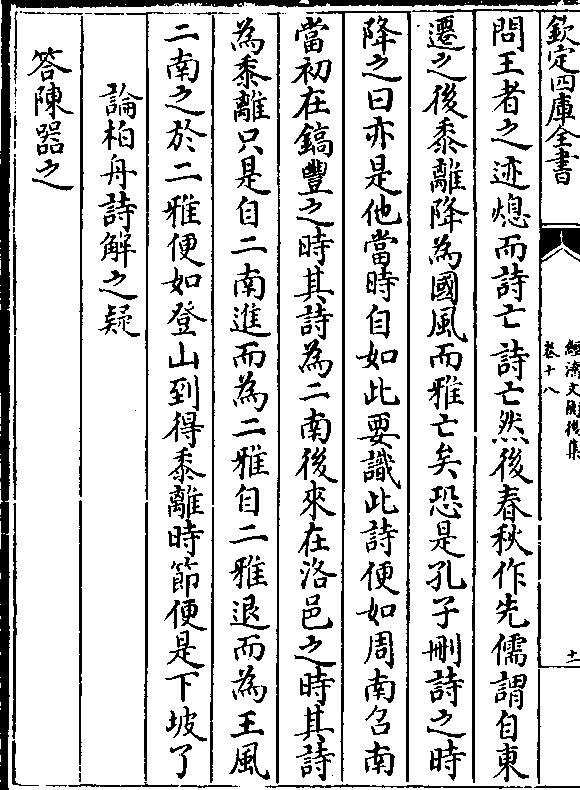 欽定四庫全書
經濟文衡後集
卷十八
十一
問王者之迹熄而詩亡詩亡然後春秋作先儒謂自東
遷之後黍離降為國風而雅亡矣恐是孔子刪詩之時
降之曰亦是他當時自如此要識此詩便如周南召南
當初在鎬豐之時其詩為二南後來在洛邑之時其詩
為黍離只是自二南進而為二雅自二雅退而為王風
二南之於二雅便如登山到得黍離時節便是下坡了
論柏舟詩解之疑
答陳器之